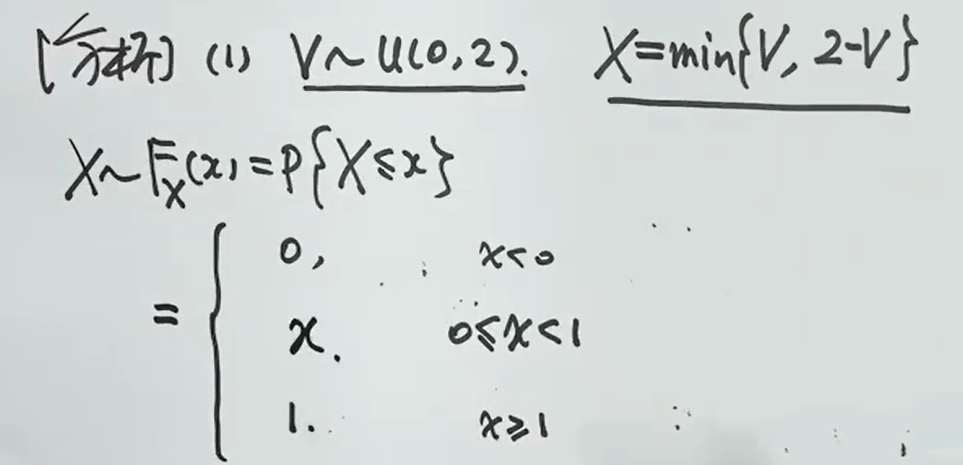 [分析] (1) V~U(0,2). X=min{V, 2-V}
X~F_X(x)=P{X≤x}
= { 0, x<0
x. 0≤x<1
1. x≥1